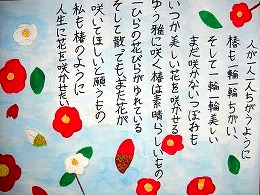 人が一人一人ちがうように
椿も一輪一輪ちがい、
そして一輪一輪美しい
まだ咲かないつぼみも
いつか美しい花を咲かせる
ゆう雅に咲く椿は素晴らしいもの
一ひらの花びらがゆれている
そして散ってもまた花が
咲いてほしいと願うもの
私も椿のように
人生に花を咲かせたい